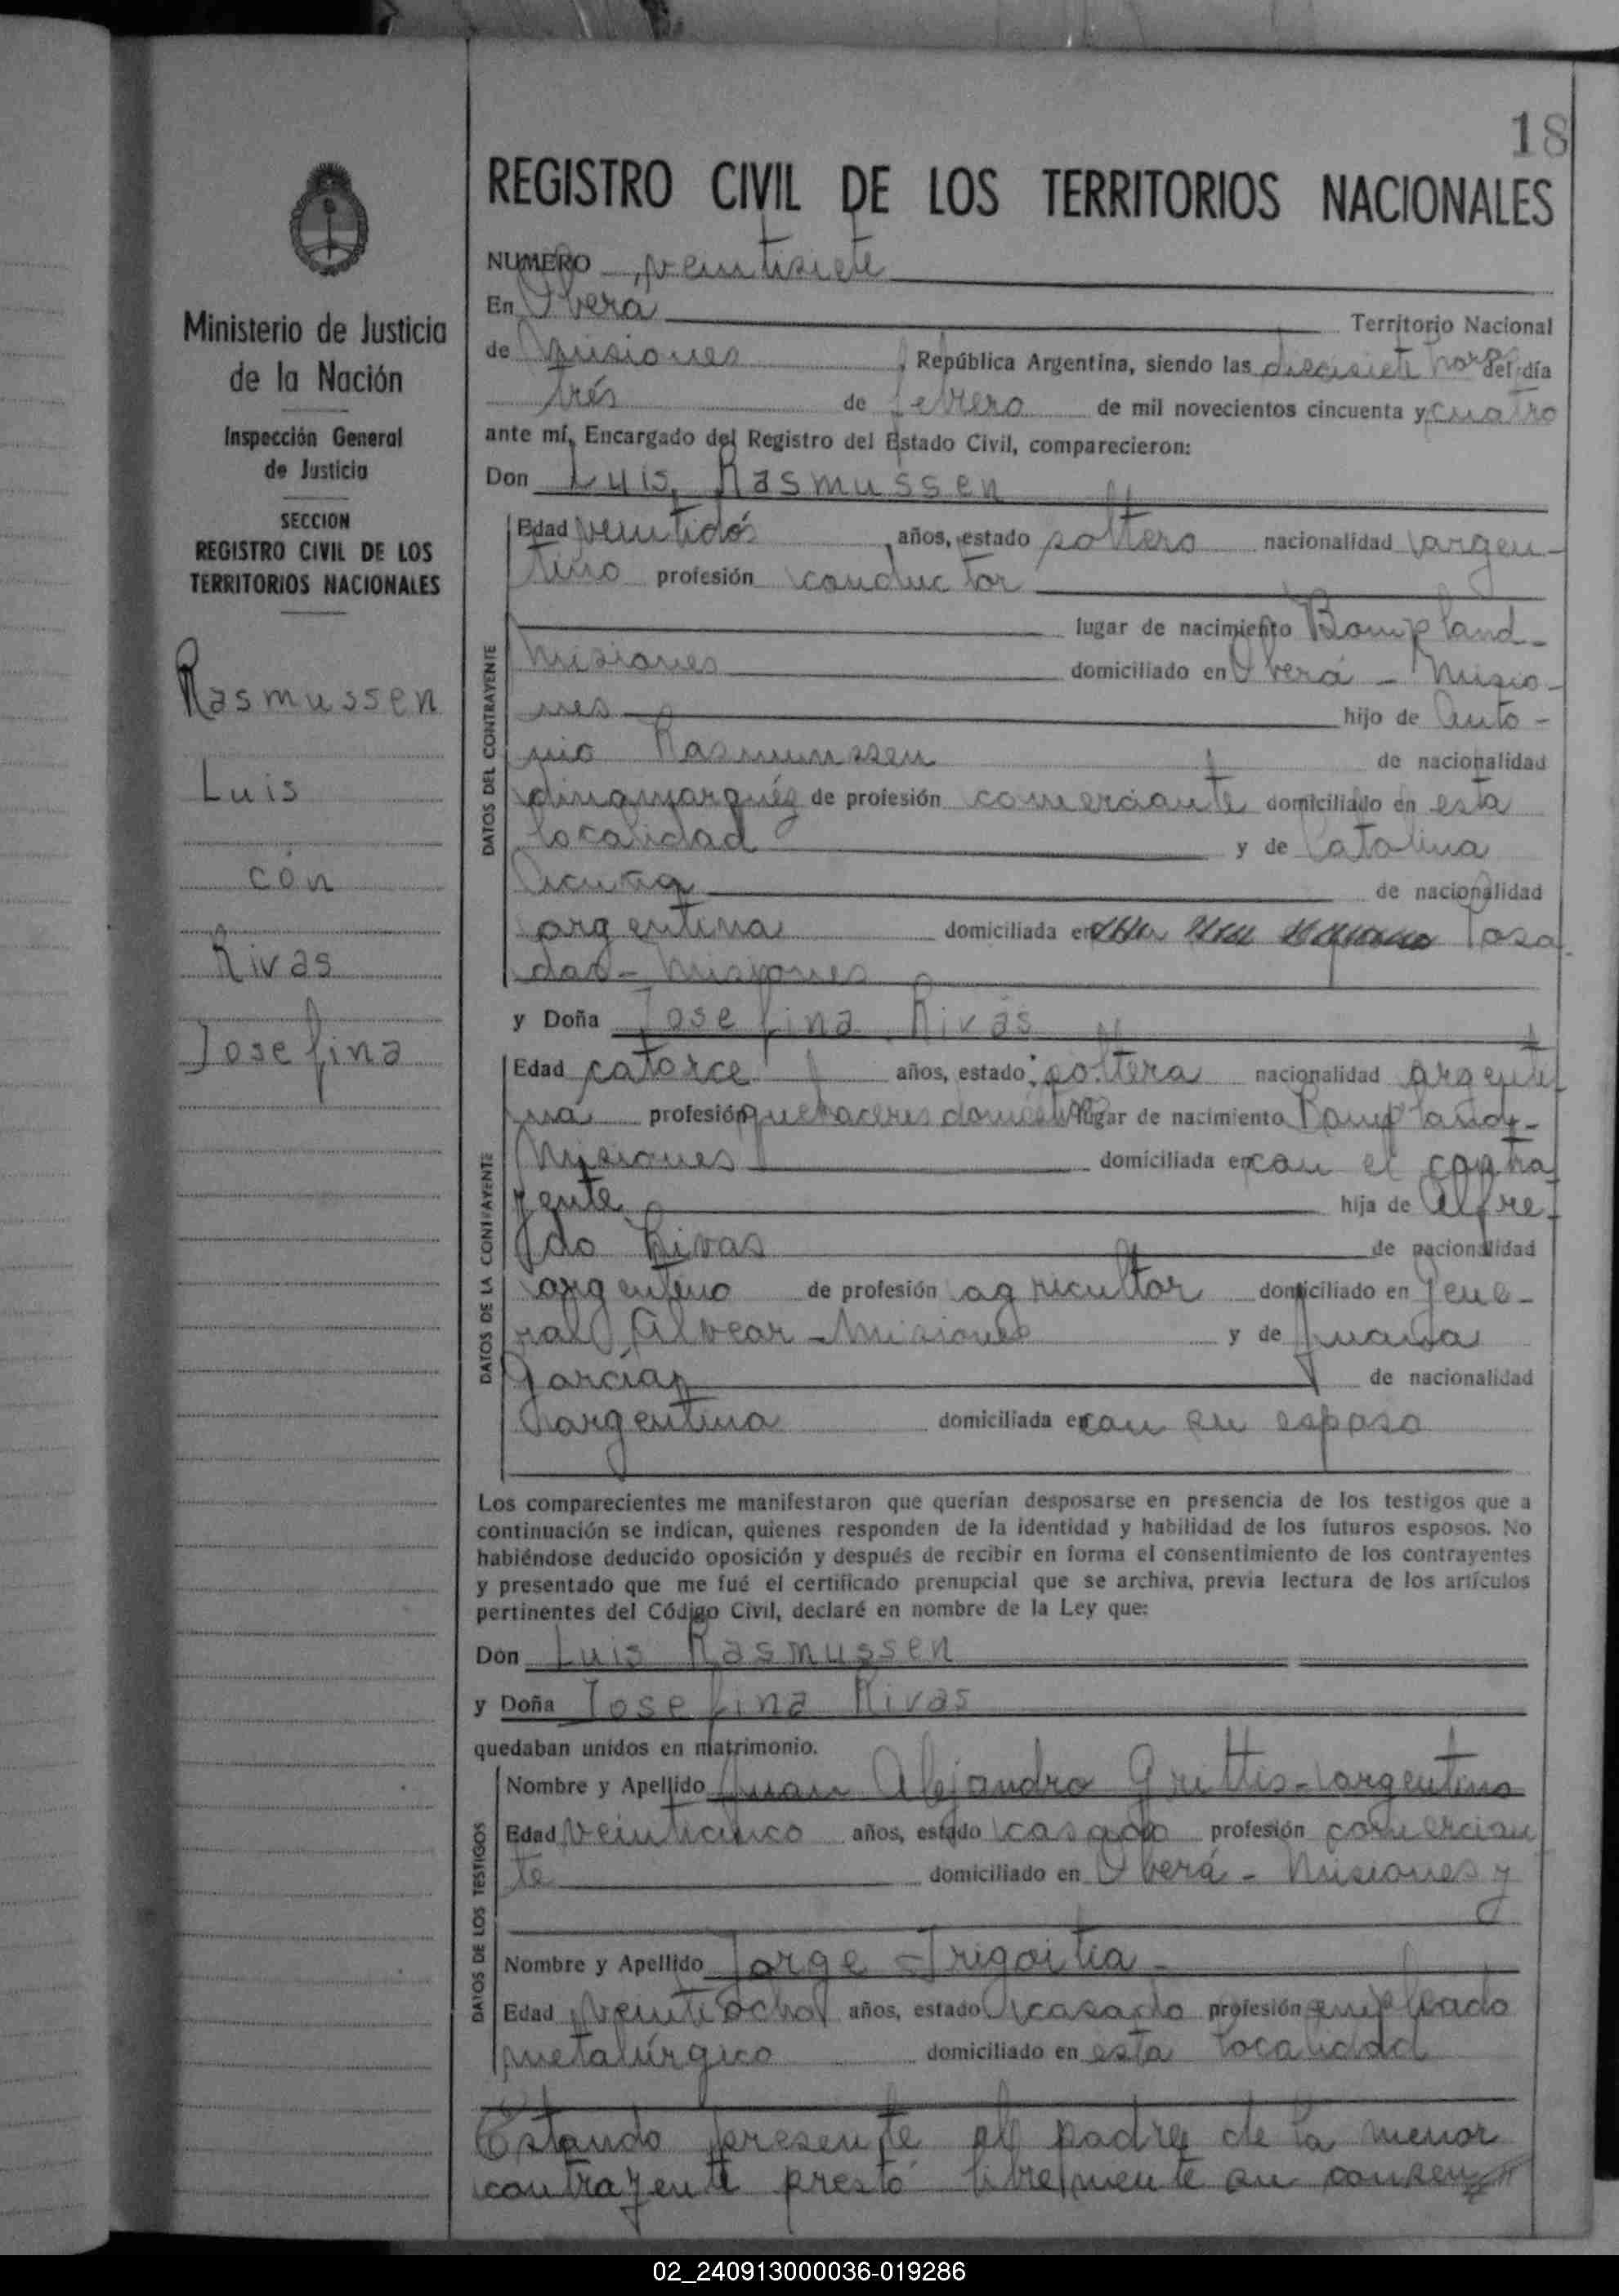 18
REGISTRO CIVIL DE LOS TERRITORIOS NACIONALES
Ministerio de Justicia
de la Nación
Inspección General
de Justicia
SECCION
REGISTRO CIVIL DE LOS
TERRITORIOS NACIONALES
Rasmussen
Luis
con
Rivas
Josefina
NUMERO veintisiete
En Oberá Territorio Nacional
de Misiones, República Argentina, siendo las diecisiete horas del día
trés de febrero de mil novecientos cincuenta y cuatro
ante mí, Encargado del Registro del Estado Civil, comparecieron:
Don Luis Rasmussen
DATOS DEL CONTRAYENTE
Edad veintidós años, estado soltero nacionalidad argen-
tino profesión conductor
lugar de nacimiento Bompland-
Misiones domiciliado en Oberá - Misio-
nes hijo de Anto-
nio Rasmunssen de nacionalidad
dinamarqués de profesión comerciante domiciliado en esta
localidad y de Catalina
Acuña de nacionalidad
argentina domiciliada en Posa
das - Misiones
y Doña Josefina Rivas
DATOS DE LA CONTRAYENTE
Edad catorce años, estado soltera nacionalidad argenti
na profesión quehaceres domésticos lugar de nacimiento Bompland-
Misiones domiciliada en con el contra
yente hija de Alfre-
do Rivas de nacionalidad
argentino de profesión agricultor domiciliado en Gene-
ral Alvear - Misiones y de Juana
García de nacionalidad
argentina domiciliada en con su esposo
Los comparecientes me manifestaron que querían desposarse en presencia de los testigos que a
continuación se indican, quienes responden de la identidad y habilidad de los futuros esposos. No
habiéndose deducido oposición y después de recibir en forma el consentimiento de los contrayentes
y presentado que me fué el certificado prenupcial que se archiva, previa lectura de los artículos
pertinentes del Código Civil, declaré en nombre de la Ley que:
Don Luis Rasmussen
y Doña Josefina Rivas
quedaban unidos en matrimonio.
DATOS DE LOS TESTIGOS
Nombre y Apellido Juan Alejandro Grittis - argentino
Edad veinticinco años, estado casado profesión comercian
te domiciliado en Oberá - Misiones y
Nombre y Apellido Jorge Irigoitia -
Edad veintiocho años, estado casado profesión empleado
metalúrgico domiciliado en esta localidad
Estando presente el padre de la menor
contrayente prestó libremente su consen
02_240913000036-019286